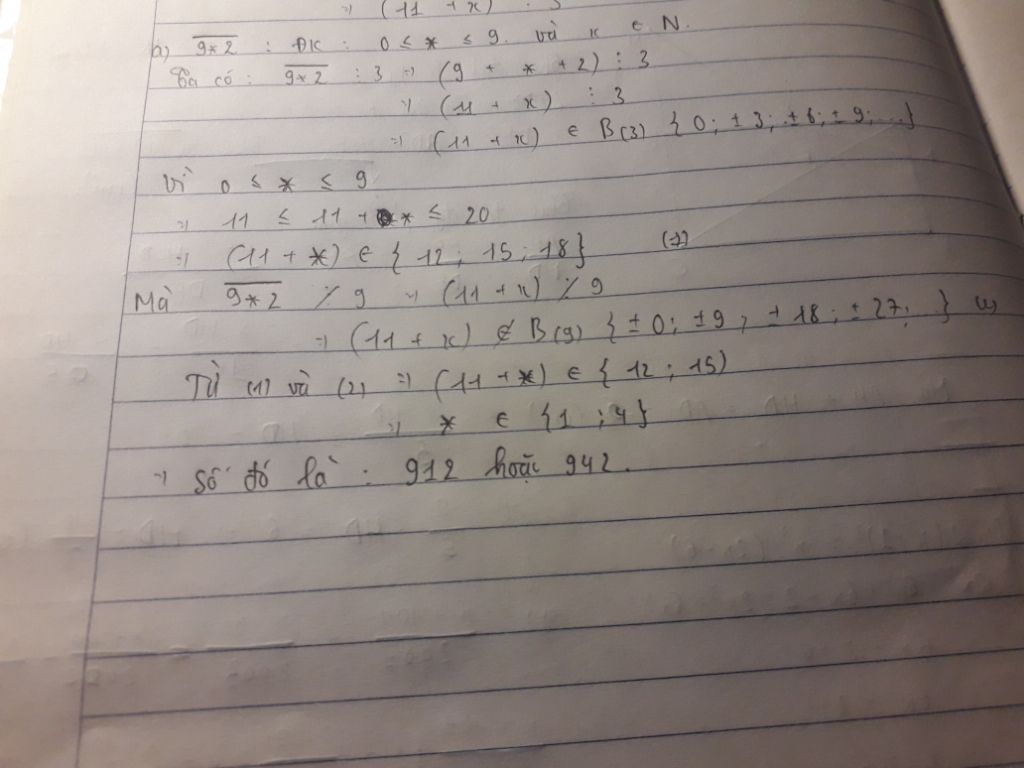 => (11 + x) ⋮ 3
a) 9*2 : ĐK : 0 ≤ * ≤ 9. và x ∈ N.
Ta có : 9*2 ⋮ 3 => (9 + * + 2) ⋮ 3
=> (11 + x) ⋮ 3
=> (11 + x) ∈ B(3) { 0; ±3; ±6; ±9; ...}
Vì 0 ≤ * ≤ 9
=> 11 ≤ 11 + * ≤ 20
=> (11 + *) ∈ { 12 ; 15 ; 18} (1)
Mà 9*2 ⋮̸ 9 => (11 + x) ⋮̸ 9
=> (11 + x) ∉ B(9) { ±0; ±9 ; ±18 ; ±27; }
Từ (1) và (2) => (11 + *) ∈ { 12 ; 15)
=> * ∈ {1 ; 4}
=> Số đó là : 912 hoặc 942.